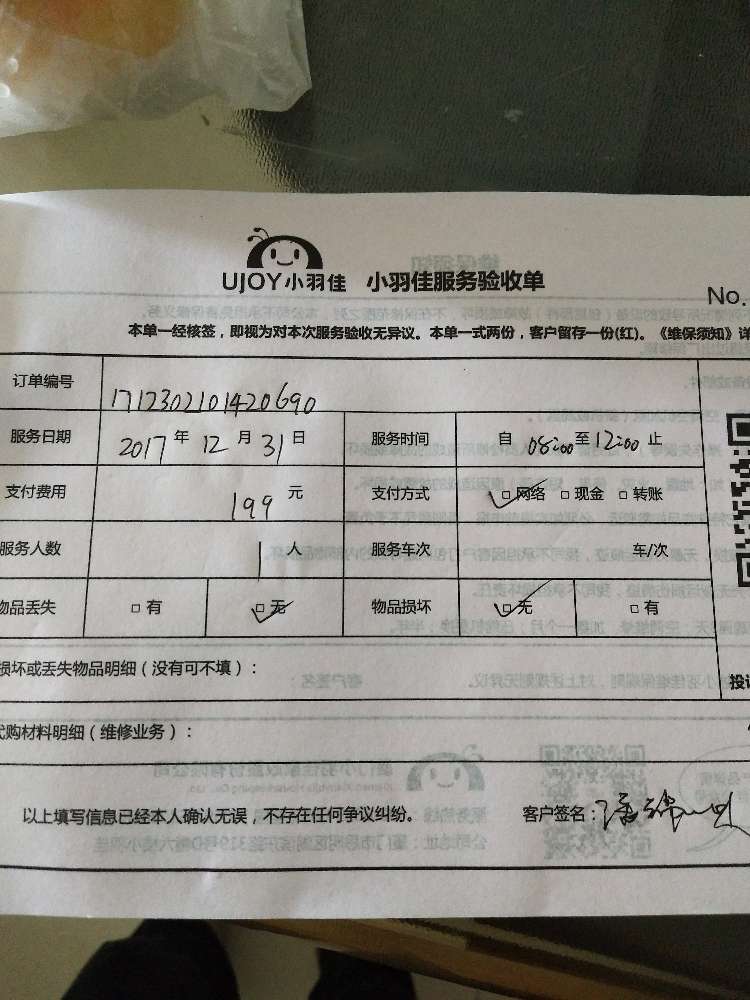 UJOY小羽佳 小羽佳服务验收单
No.
本单一经核签，即视为对本次服务验收无异议。本单一式两份，客户留存一份(红)。《维保须知》详
订单编号 1712302101420690
服务日期 2017年12月31日 服务时间 自 08:00至12:00止
支付费用 199元 支付方式 □网络 □现金 □转账
服务人数 1人 服务车次 车/次
物品丢失 □有 □无 物品损坏 □无 □有
损坏或丢失物品明细（没有可不填）：
投诉
代购材料明细（维修业务）：
以上填写信息已经本人确认无误，不存在任何争议纠纷。 客户签名：